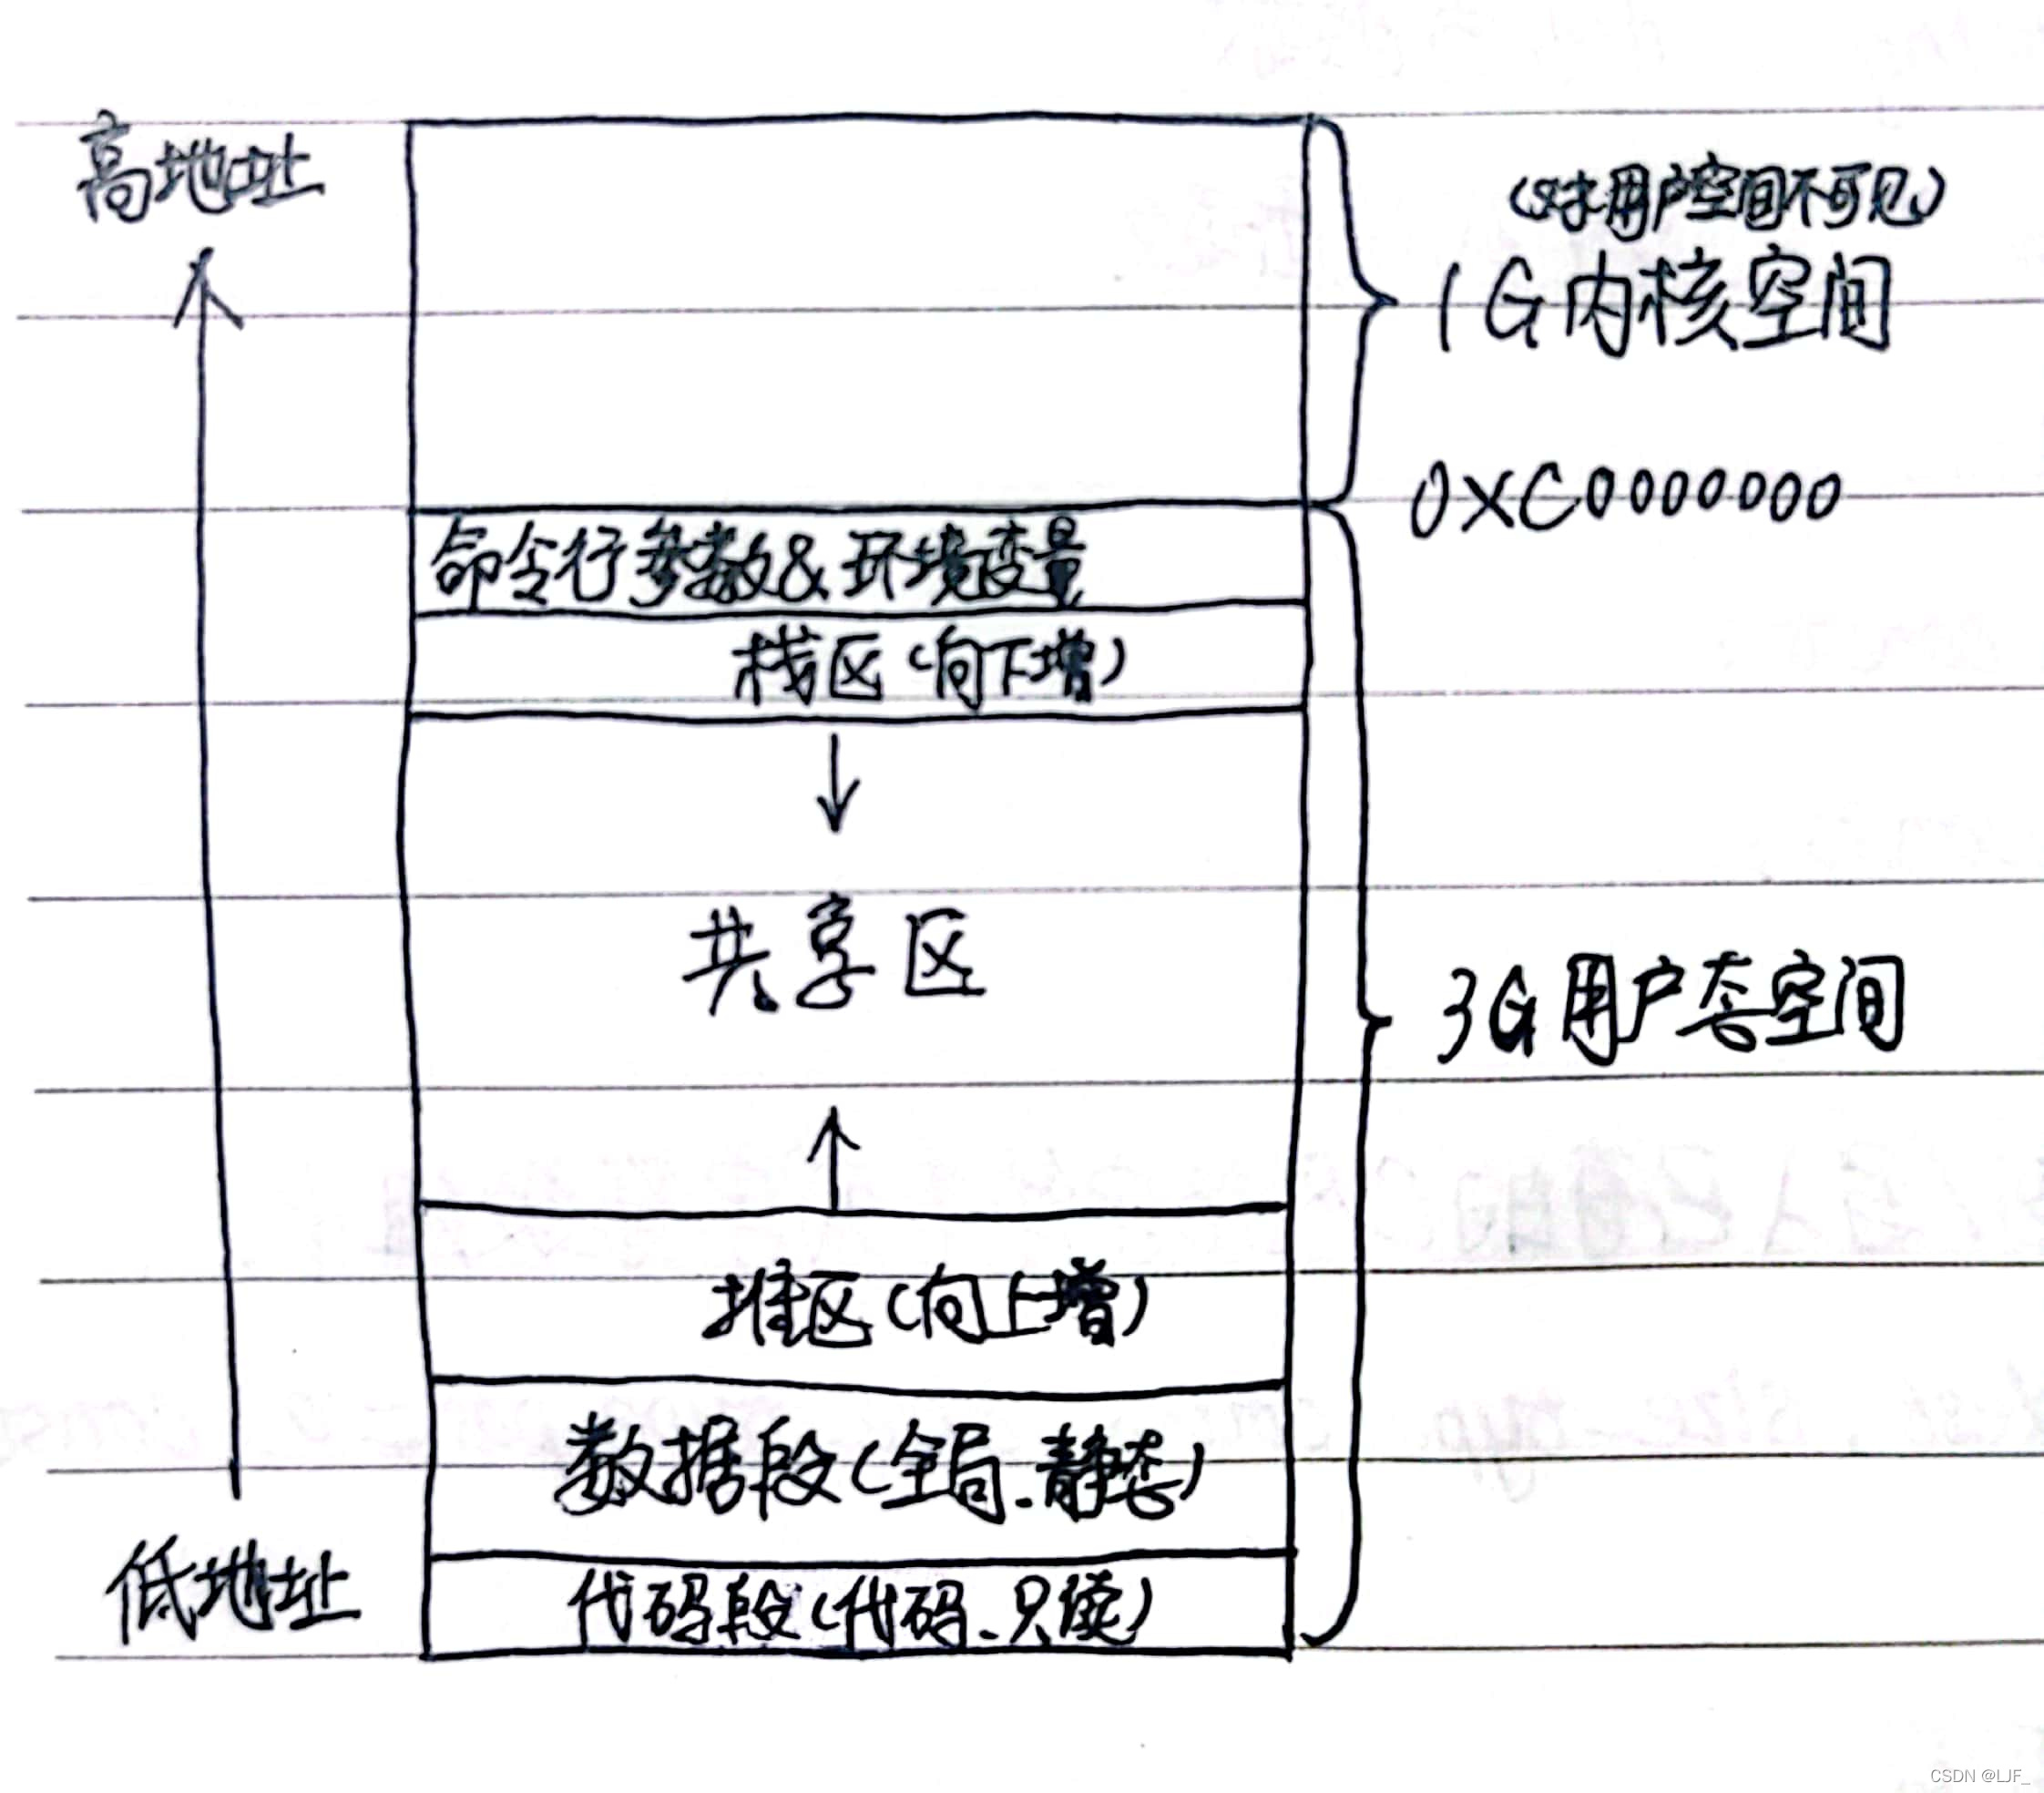 高地址
(对用户空间不可见)
1G内核空间
0XC0000000
命令行参数&环境变量
栈区(向下增)
共享区
3G用户态空间
堆区(向上增)
数据段(全局、静态)
代码段(代码、只读)
低地址
CSDN @LJF_